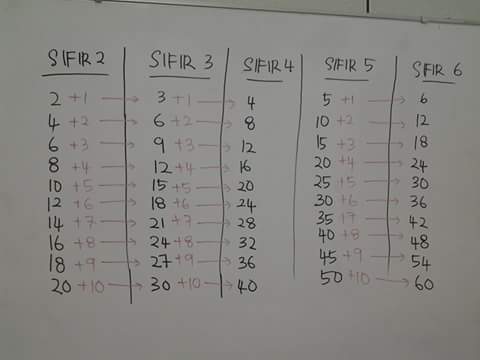 SIFIR 2 SIFIR 3 SIFIR 4 SIFIR 5 SIFIR 6
2 +1 → 3 +1 → 4 5 +1 → 6
4 +2 → 6 +2 → 8 10 +2 → 12
6 +3 → 9 +3 → 12 15 +3 → 18
8 +4 → 12 +4 → 16 20 +4 → 24
10 +5 → 15 +5 → 20 25 +5 → 30
12 +6 → 18 +6 → 24 30 +6 → 36
14 +7 → 21 +7 → 28 35 +7 → 42
16 +8 → 24 +8 → 32 40 +8 → 48
18 +9 → 27 +9 → 36 45 +9 → 54
20 +10 → 30 +10 → 40 50 +10 → 60